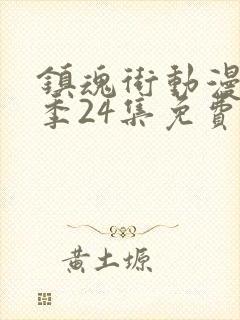 鎮魂街動漫
季24集免費
黃土塬